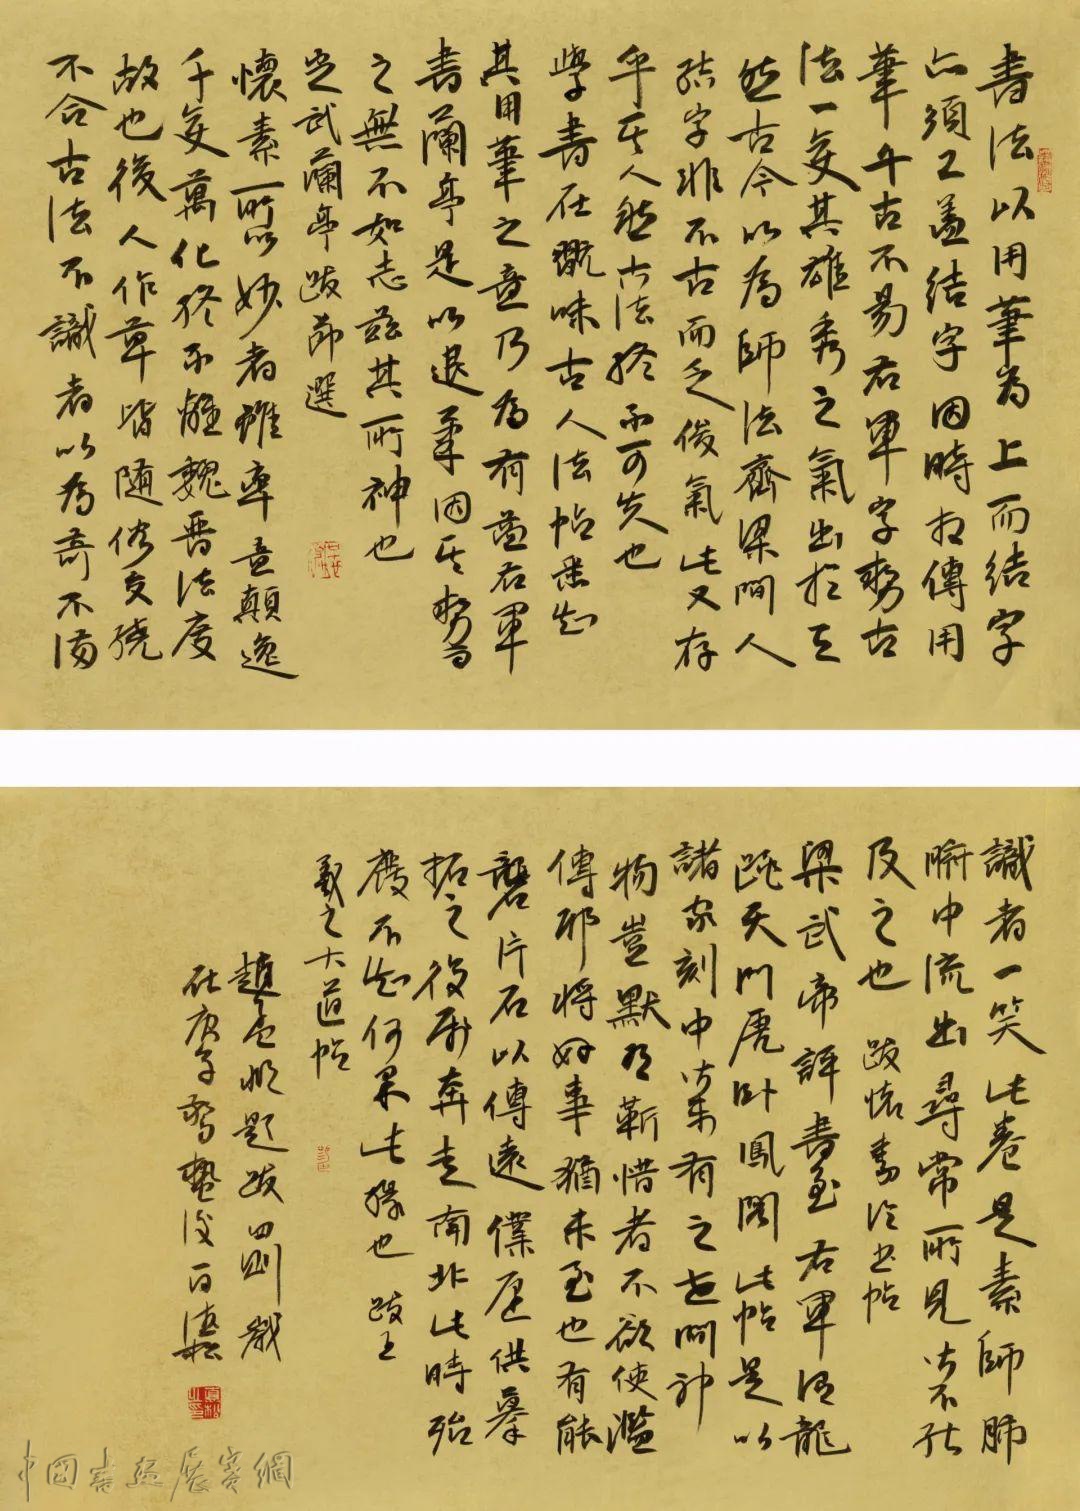 書法以用筆為上而結字
亦須工蓋結字因時相傳用
筆千古不易右軍字勢古
法一變其雄秀之氣出於天
然古今以為師法齊梁間人
結字非不古而乏俊氣此又存
乎其人然古法終不可失也
學書在玩味古人法帖悉知
其用筆之意乃為有益右軍
書蘭亭是以退筆因其勢而
之無不如志茲其所神也
定武蘭亭跋節選
懷素所以妙者雖率意顛逸
千變萬化終不離魏晉法度
故也後人作草皆隨俗交繞
不合古法不識者以為奇不滿
識者一笑此卷是素師肺
腑中流出尋常所見皆不能
及之也 跋懷素論書帖
梁武帝評書至右軍謂龍
跳天門虎臥鳳閣此帖是以
諸家刻中皆有之世間神
物豈默有靳惜者不欲使濫
傳耶將好事猶未至也有能
礱片石以傳遠僕願供摹
拓之役聞奔走南北此時殆
廢不知何果此緣也 跋王
羲之大道帖
趙孟頫題跋四則歲
在庚子驚蟄後
中國書法展賽網